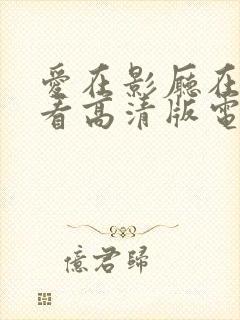 愛在影厛在
看高清版電
億君歸